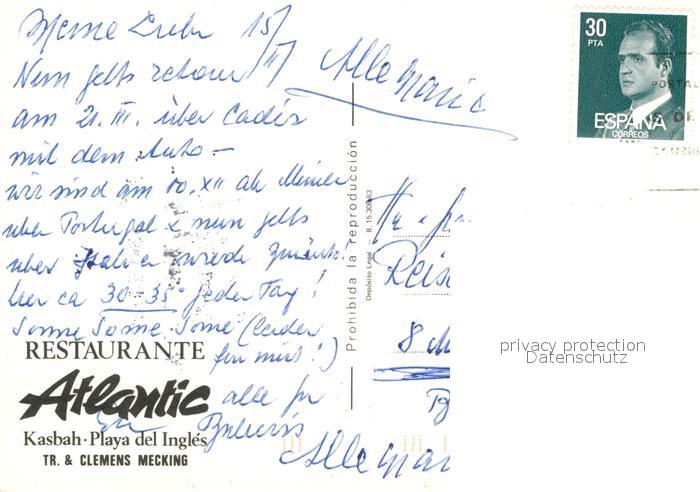 Meine Lieben 15/III
Allemania
Nun gehts retour
am 21. III. über Cadiz
mit dem Auto –
wir sind am 10. XII ab
über Portugal & nun gehts
über Italien wieder zurück!
hier ca 30-35° jeder Tag!
Sonne Sonne Sonne (leider
für mich!)
alle
RESTAURANTE
Atlantic
Kasbah · Playa del Inglés
TR. & CLEMENS MECKING
Prohibida la reproducción
Depósito Legal
30
PTA
ESPAÑA
CORREOS
8
privacy protection
Datenschutz